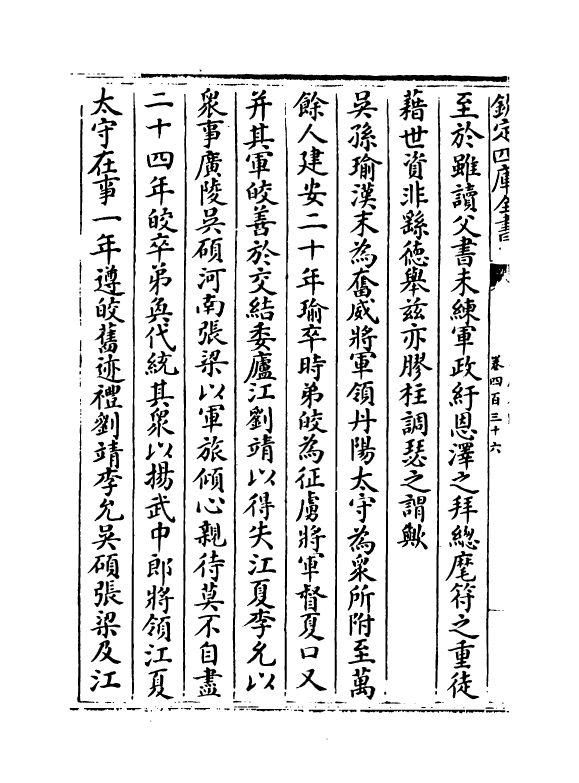 欽定四庫全書
卷四百三十六
至於雖讀父書未練軍政紆恩澤之拜總麾符之重徒
藉世資非繇德舉兹亦膠柱調瑟之謂歟
吳孫瑜漢末為奮威將軍領丹陽太守為衆所附至萬
餘人建安二十年瑜卒時弟皎為征虜將軍督夏口又
并其軍皎善於交結委廬江劉靖以得失江夏李允以
衆事廣陵吳碩河南張梁以軍旅傾心親待莫不自盡
二十四年皎卒弟奐代統其衆以揚武中郎將領江夏
太守在事一年遵皎舊迹禮劉靖李允吳碩張梁及江